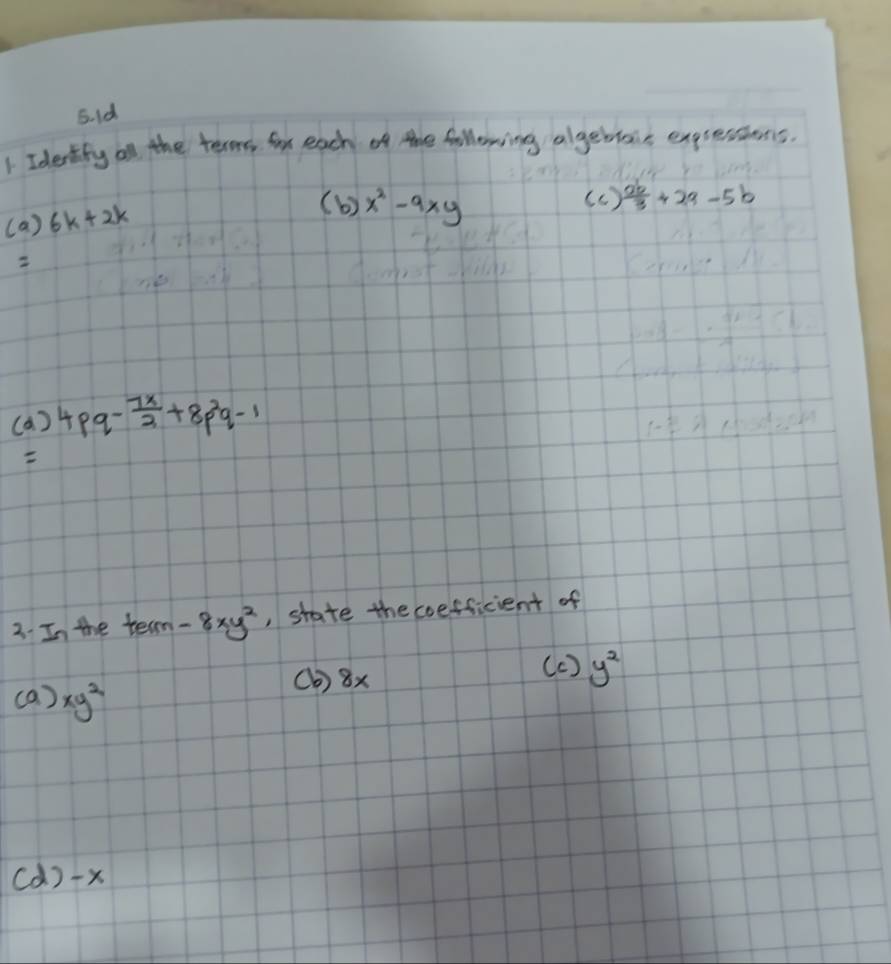 5.1d
1. Identify all the terms for each of the following algebraic expressions.
(a) 6k + 2k (b) x² - 9xy (c) ab/3 + 2a - 5b
=
(d) 4pq - 7x/2 + 8p²q - 1
=
2. In the term - 8xy², state the coefficient of
(a) xy² (b) 8x (c) y²
(d) - x